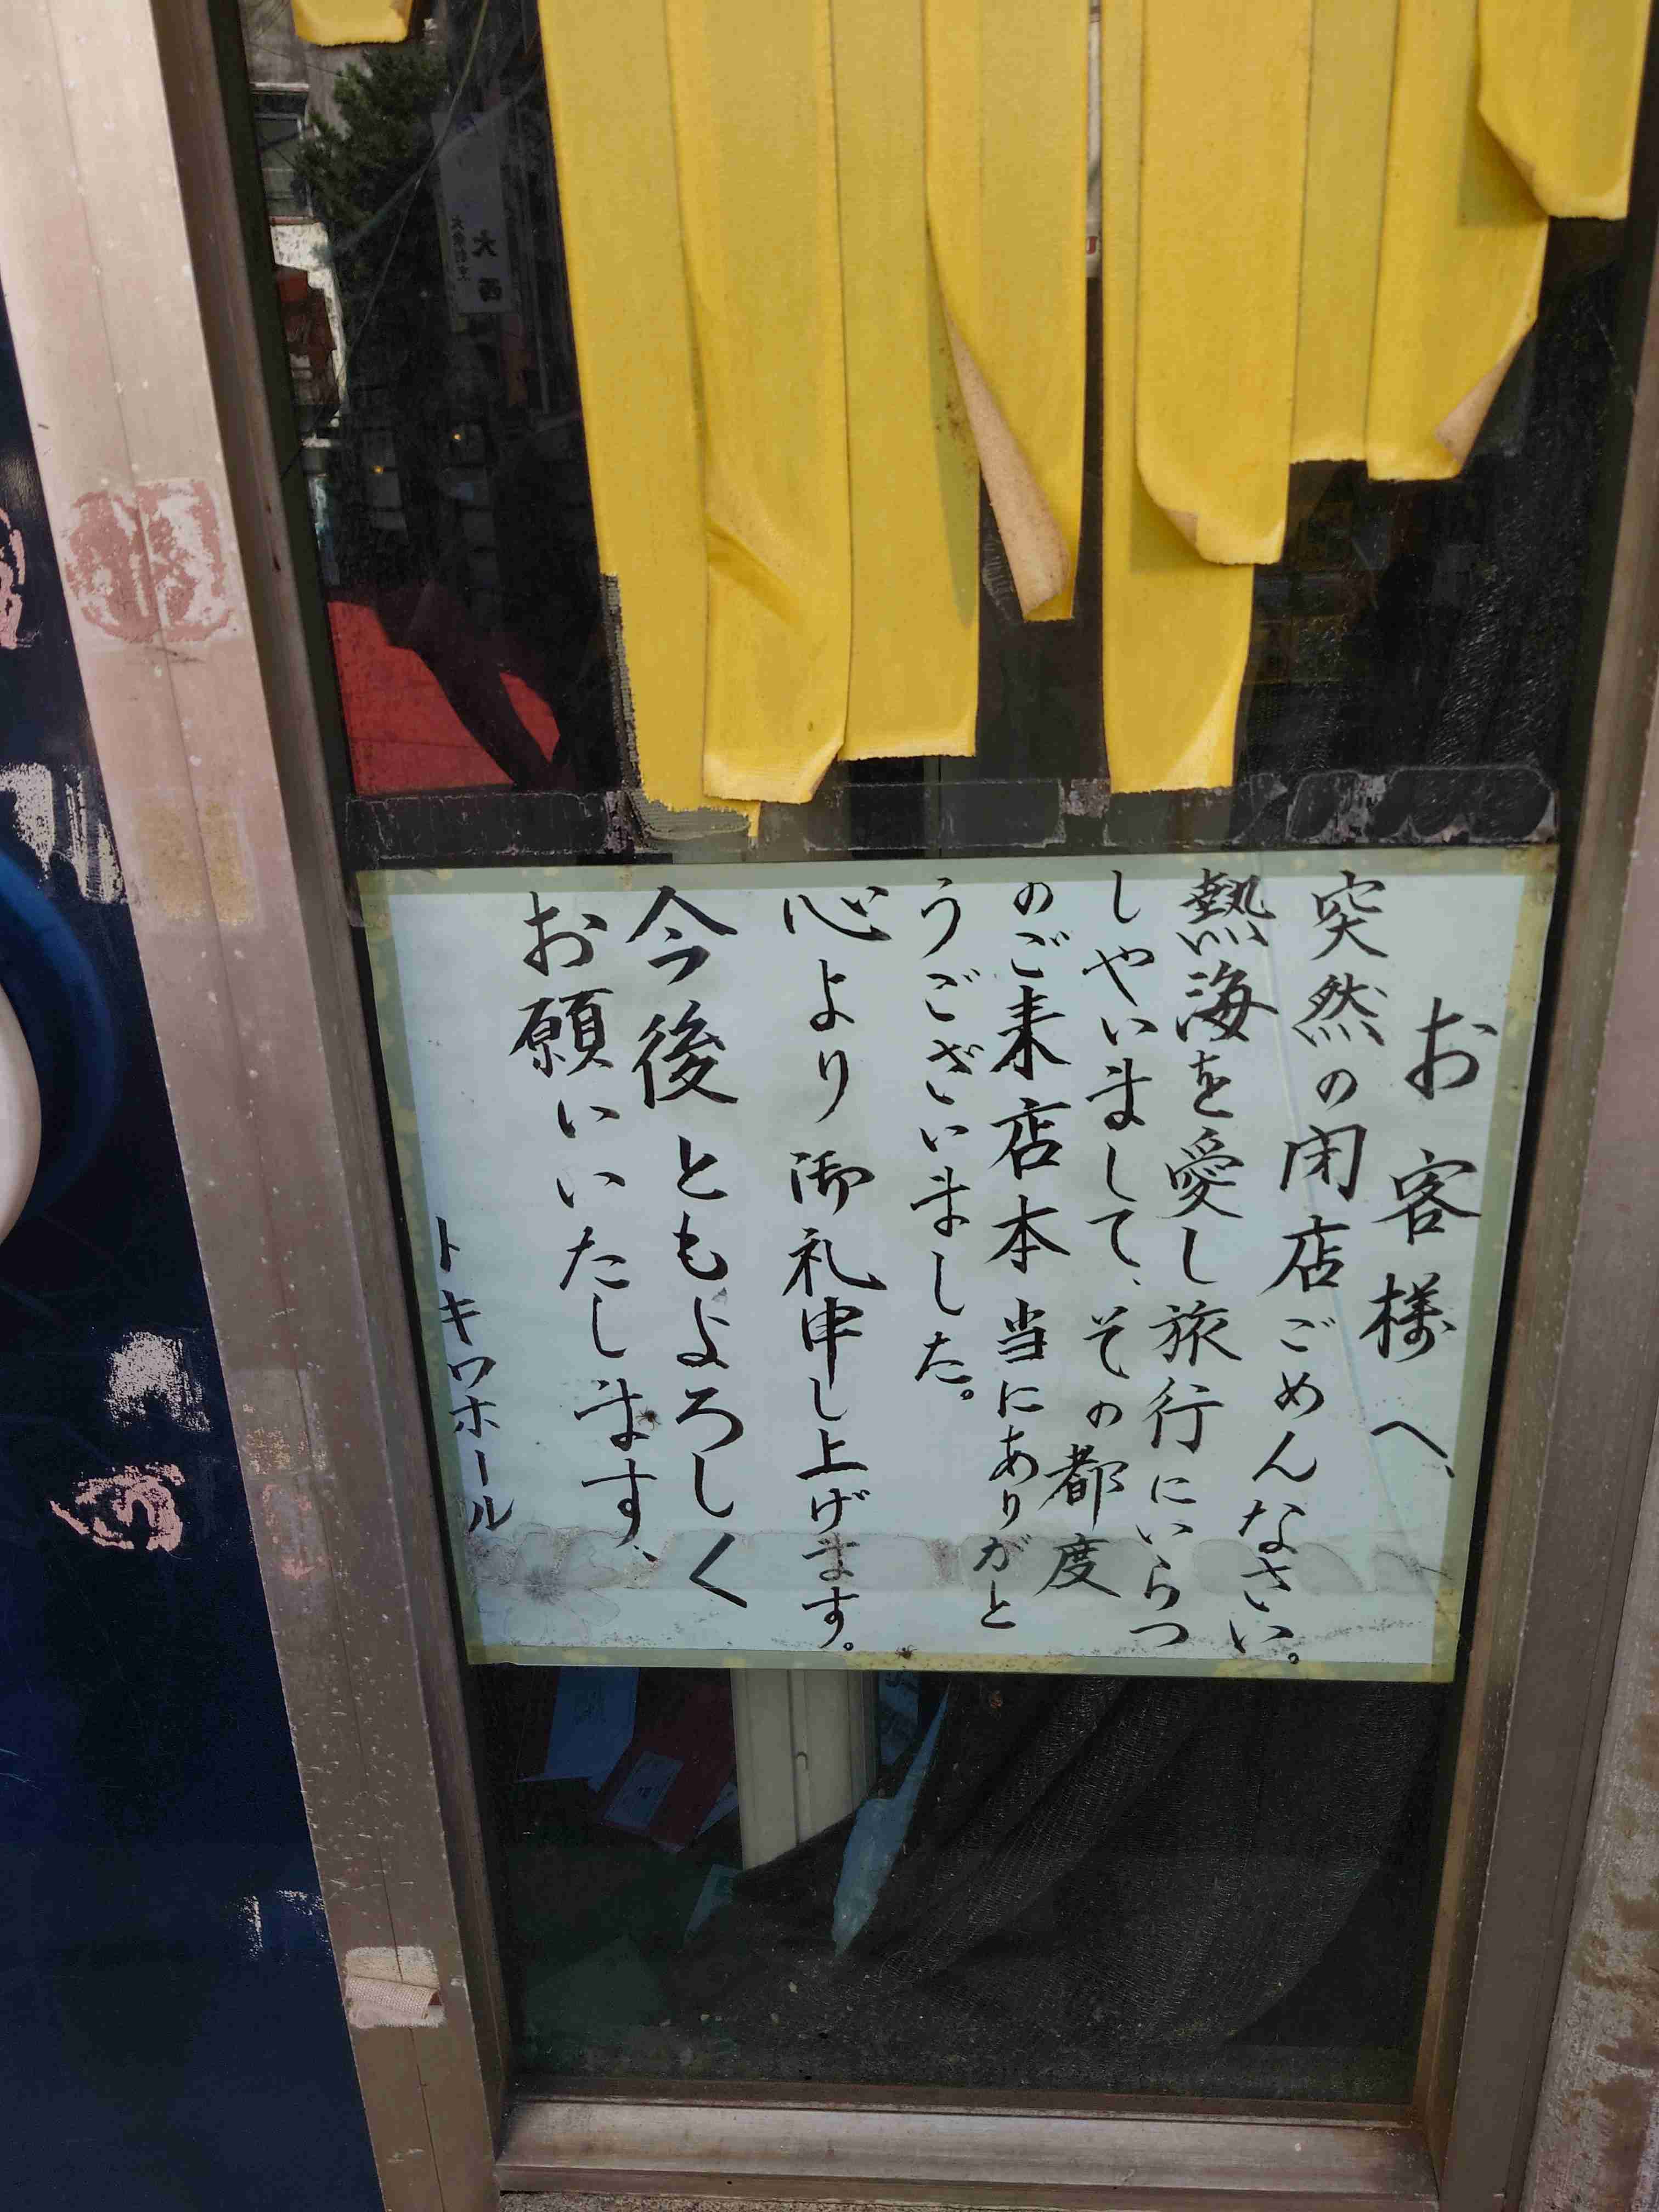 お客様へ、
突然の閉店ごめんなさい。
熱海を愛し旅行にいらっ
しゃいまして、その都度
のご来店本当にありがと
うございました。
心より御礼申し上げます。
今後ともよろしく
お願いいたします、
トキワホール